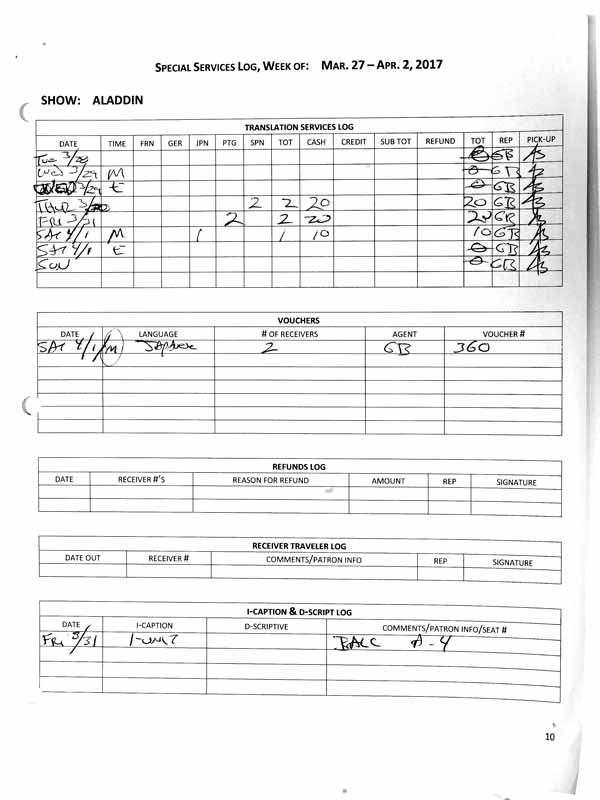 SPECIAL SERVICES LOG, WEEK OF: MAR. 27 – APR. 2, 2017
SHOW: ALADDIN
TRANSLATION SERVICES LOG
DATE TIME FRN GER JPN PTG SPN TOT CASH CREDIT SUB TOT REFUND TOT REP PICK-UP
TUE 3/28 0 GB
WED 3/29 M 0 GB
3/29 E 0 GB
THUR 3/30 2 2 20 20 GB
FRI 3/31 2 2 20 20 GB
SAT 4/1 M 1 1 10 10 GB
SAT 4/1 E 0 GB
SUN 0 GB
VOUCHERS
DATE LANGUAGE # OF RECEIVERS AGENT VOUCHER #
SAT 4/1/M 2 GB 360
REFUNDS LOG
DATE RECEIVER #'S REASON FOR REFUND AMOUNT REP SIGNATURE
RECEIVER TRAVELER LOG
DATE OUT RECEIVER # COMMENTS/PATRON INFO REP SIGNATURE
I-CAPTION & D-SCRIPT LOG
DATE I-CAPTION D-SCRIPTIVE COMMENTS/PATRON INFO/SEAT #
FRI 3/31 1-UNIT BALC A-4
10